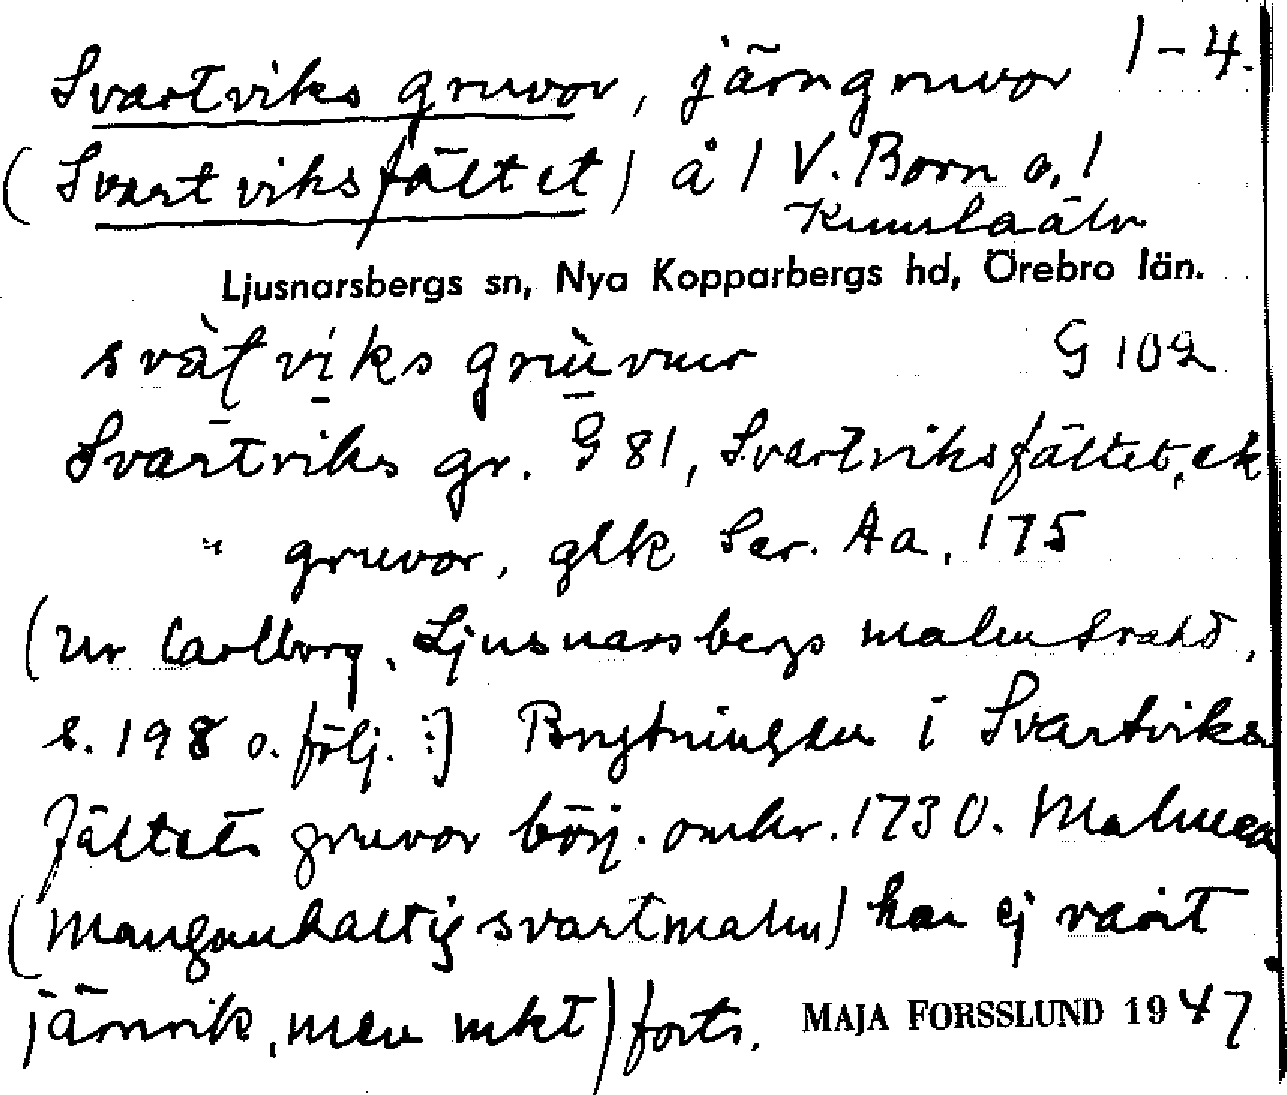 Svartviks gruvor, järngruvor 1-4.
(Svartviksfältet) å 1 V. Born o. 1
Kumlaälv
Ljusnarsbergs sn, Nya Kopparbergs hd, Örebro län.
svàťviks grùvuur G 102
Svartviks gr. G 81, Svartviksfältet, ek
" gruvor, glk Ser. Aa, 175
(Ur Carlborg, Ljusnarsbergs malmtrakt,
s. 198 o. följ. :] Brytningen i Svartviks
fältets gruvor börj. omkr. 1730. Malmen
(manganhaltig svartmalm) har ej varit
järnrik, men mkt) forts. MAJA FORSSLUND 1947